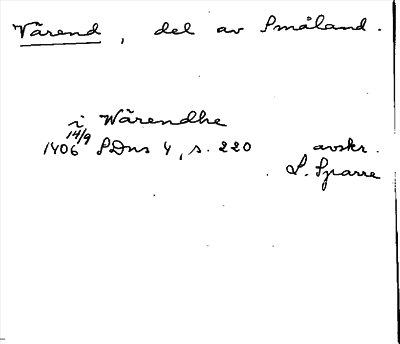 Värend, del av Småland.
i Wärendhe
1406 14/9 SDns 4, s. 220 avskr.
S. Sparre